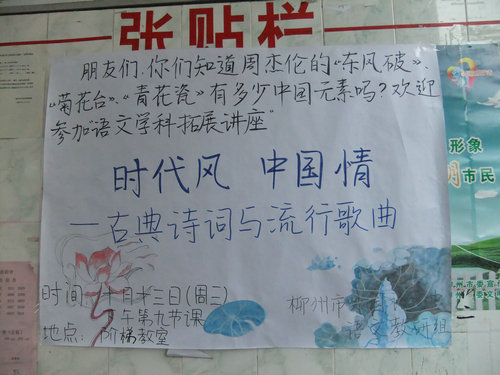 张贴栏
朋友们,你们知道周杰伦的“东风破”、
“菊花台”、“青花瓷”有多少中国元素吗?欢迎
参加“语文学科拓展讲座”
时代风 中国情
—古典诗词与流行歌曲
时间: 十月十三日(周三)
午第九节课
地点: 阶梯教室
柳州市
语文教研组
形象
明市民